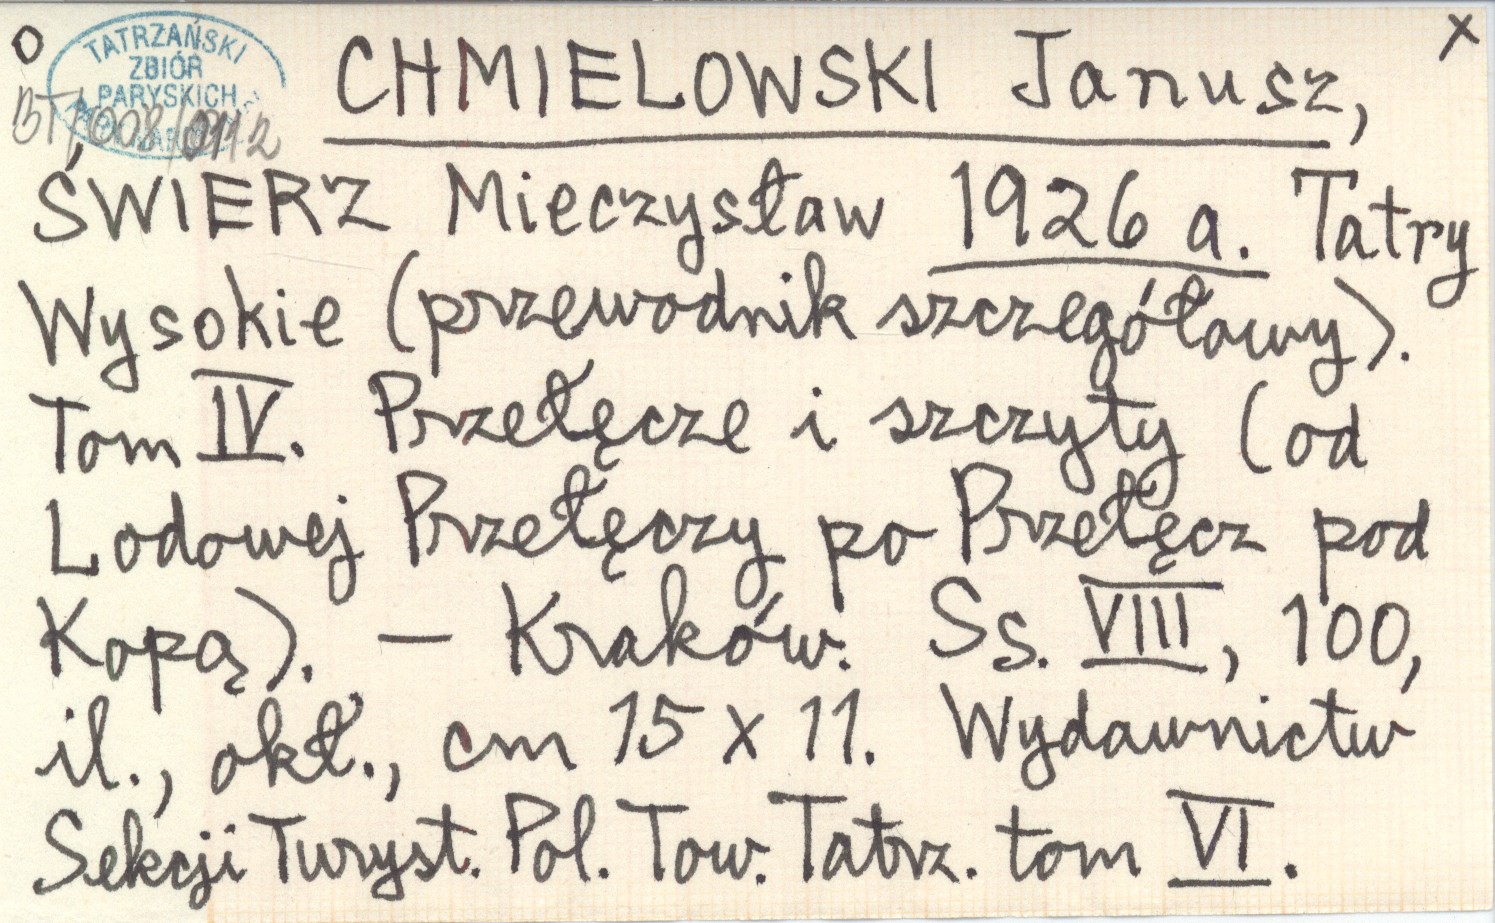 o
x
TATRZAŃSKI
ZBIÓR
PARYSKICH
CHMIELOWSKI Janusz,
ŚWIERZ Mieczysław 1926 a. Tatry
Wysokie (przewodnik szczegółowy).
Tom IV. Przełęcze i szczyty (od
Lodowej Przełęczy po Przełęcz pod
Kopą). — Kraków. Ss. VIII, 100,
il., okł., cm 15 x 11. Wydawnictw
Sekcji Turyst. Pol. Tow. Tatrz. tom VI.